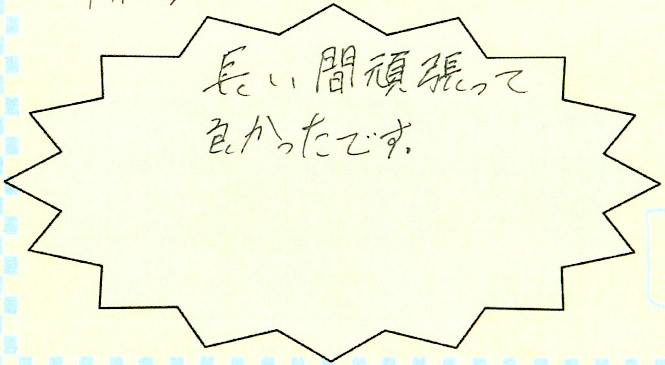 長い間頑張って
良かったです。